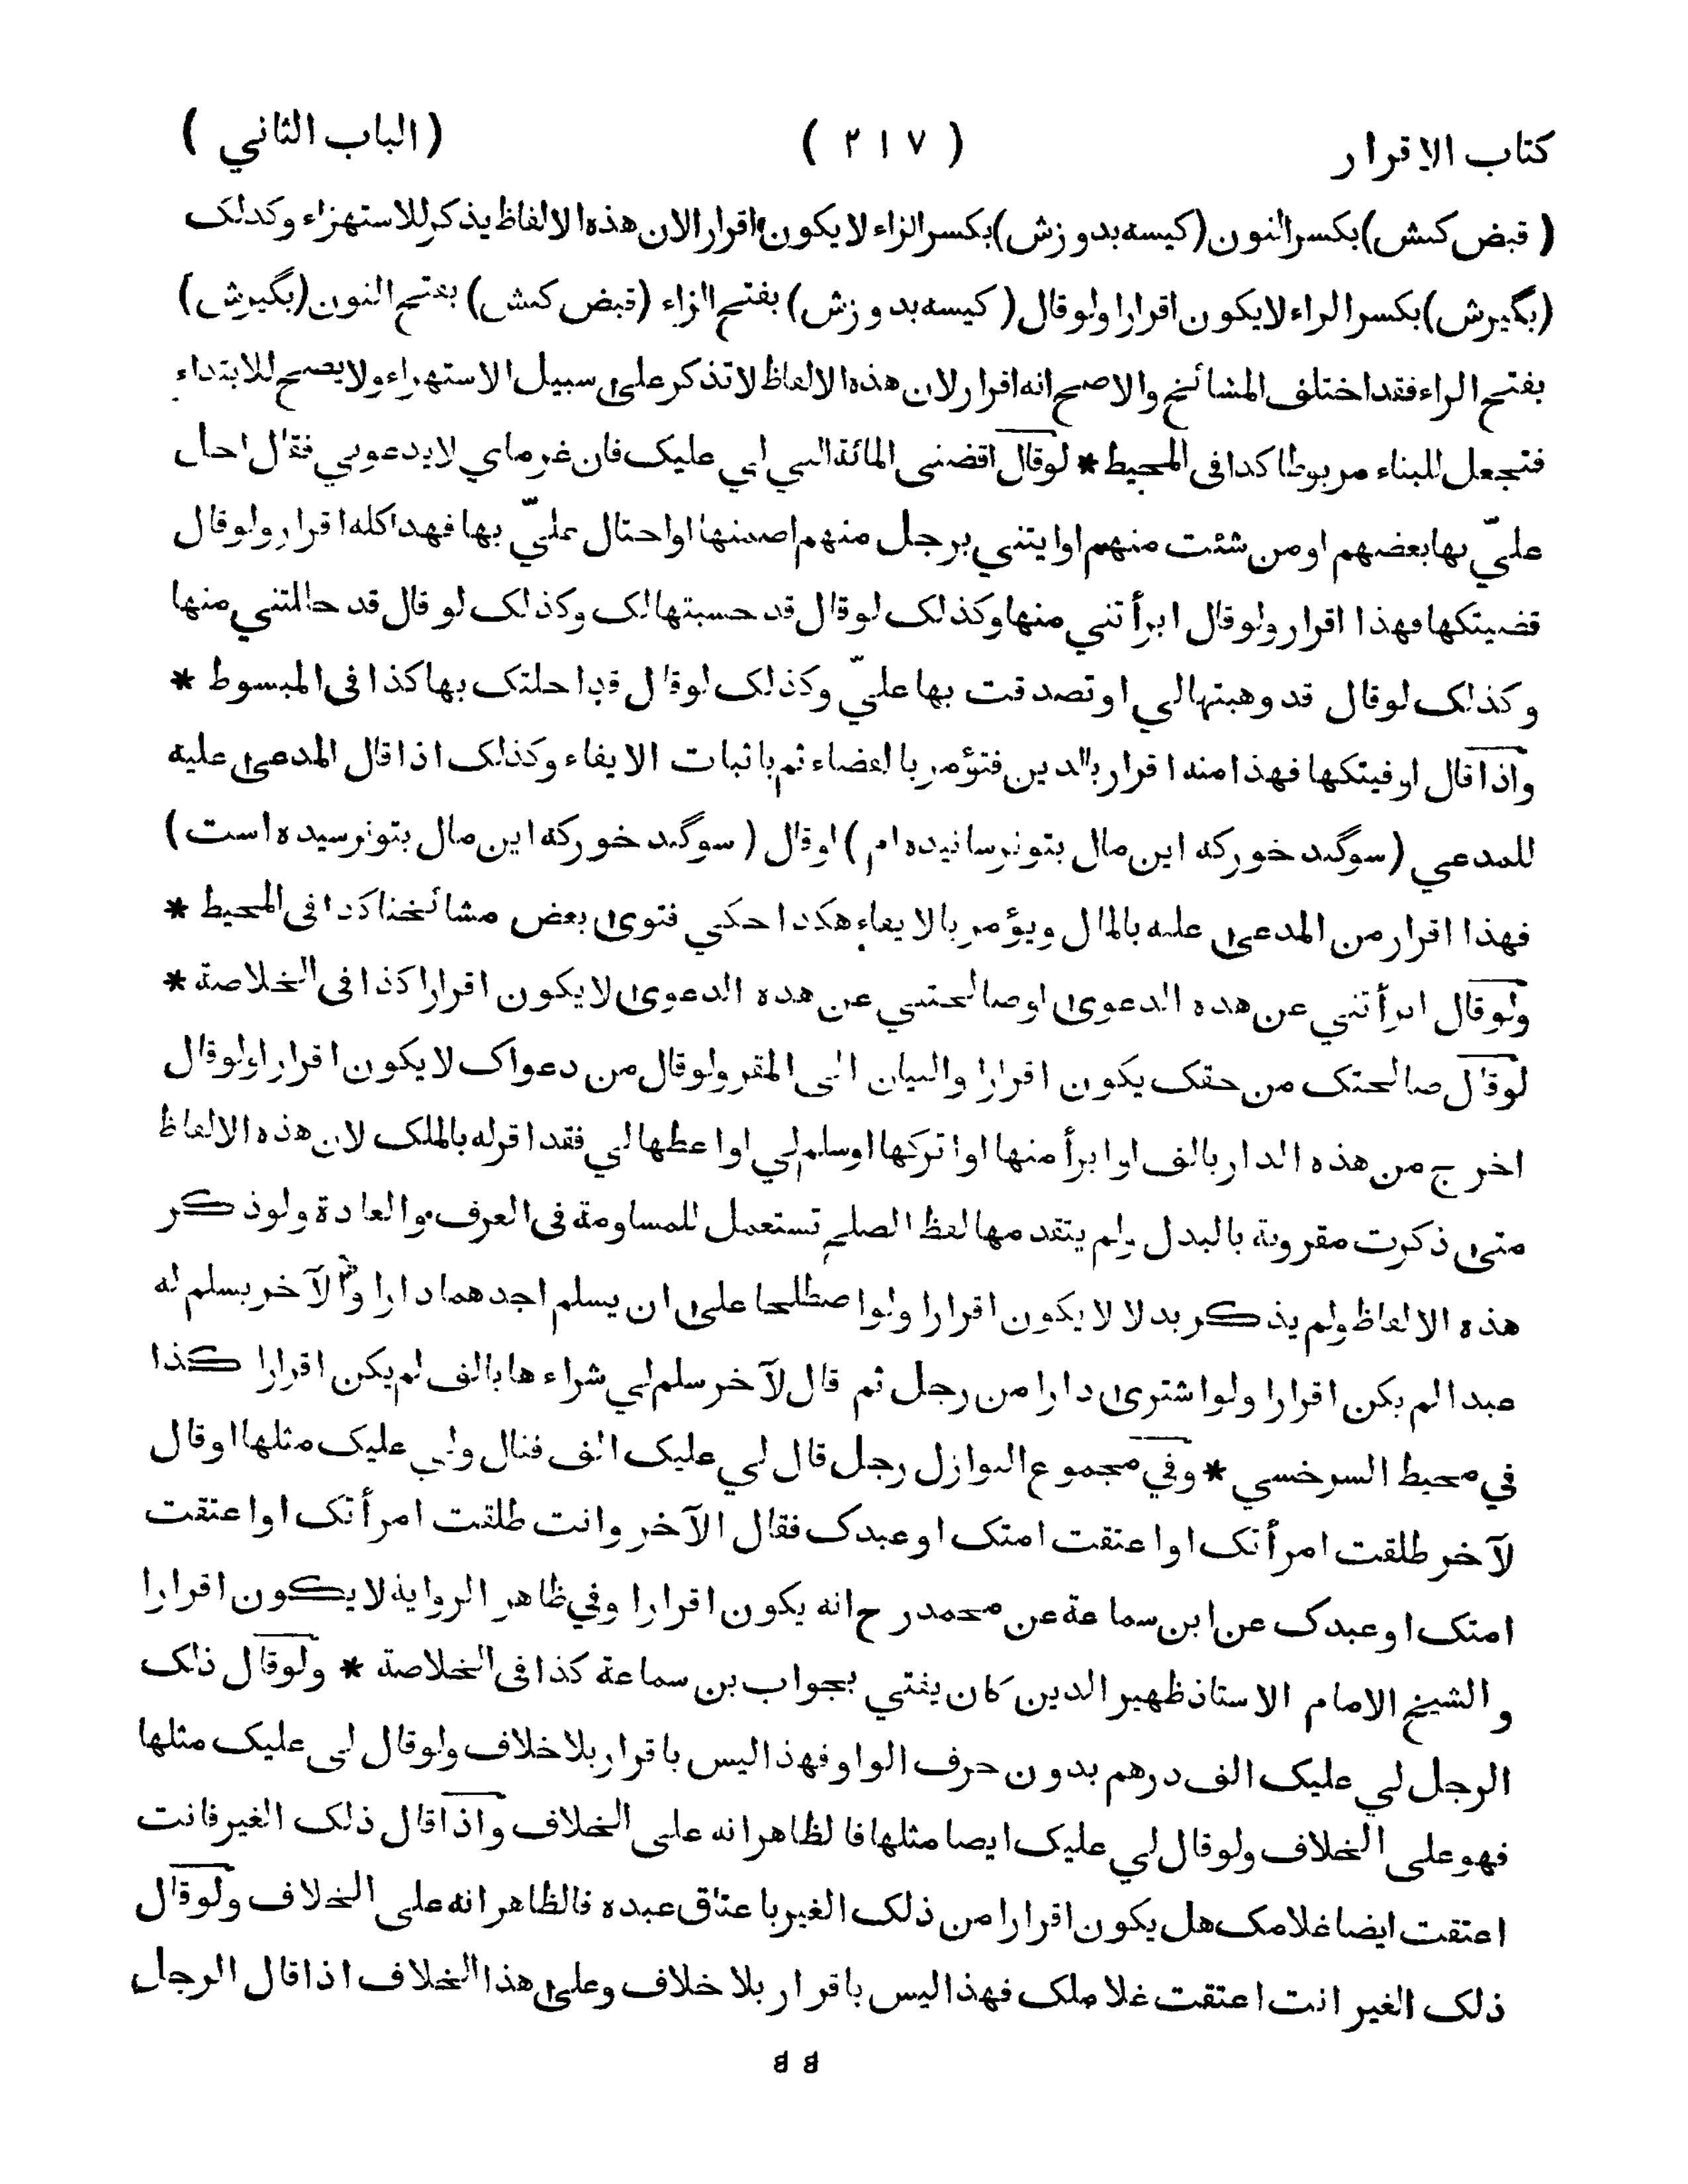 كتاب الاقرار ( ٢١٧ ) ( الباب الثاني )
( قبض كنش ) بكسر النون ( كيسه بدوزش ) بكسر الزاء لا يكون اقرارا لان هذه الالفاظ يذكر للاستهزاء وكذلك
( بگيرش ) بكسر الراء لايكون اقرارا ولو قال ( كيسه بدوزش ) بفتح الزاء ( قبض كنش ) بفتح النون ( بگيرش )
بفتح الراء فقد اختلف المشائخ والاصح انه اقرار لان هذه الالفاظ لا تذكر على سبيل الاستهزاء ولا يصح للابتداء
فتجعل للبناء مربوطا كذا فى المحيط * لو قال اقضنى المائة التي لي عليك فان غرماي لايدعوني فقال احل
عليّ بها بعضهم او من شئت منهم او ايتني برجل منهم اضمنها او احتال عليّ بها فهذا كله اقرار ولو قال
قضيتكها فهذا اقرار ولو قال ابرأتني منها وكذلك لو قال قد حسبتها لك وكذلك لو قال قد حاللتني منها
وكذلك لو قال قد وهبتها لي او تصدقت بها عليّ وكذلك لو قال قد احلتك بها كذا فى المبسوط *
واذا قال اوفيتكها فهذا منه اقرار بالدين فتؤمر بالقضاء ثم باثبات الايفاء وكذلك اذا قال المدعى عليه
للمدعي ( سوگند خور كه اين مال بتو نرسانيده ام ) او قال ( سوگند خور كه اين مال بتو نرسيده است )
فهذا اقرار من المدعى عليه بالمال ويؤمر بالايفاء هكذا حكي فتوى بعض مشائخنا كذا فى المحيط *
ولو قال ابرأتني عن هذه الدعوى او صالحتني عن هذه الدعوى لا يكون اقرارا كذا فى الخلاصة *
لو قال صالحتك من حقك يكون اقرارا والبيان الى المقر ولو قال من دعواك لا يكون اقرارا ولو قال
اخرج من هذه الدار بالف او ابرأ منها او اتركها او سلم لي او اعطها لي فقد اقر له بالملك لان هذه الالفاظ
متى ذكرت مقرونة بالبدل ولم يتقدمها لفظ الصلح تستعمل للمساومة فى العرف والعادة ولو ذكر
هذه الالفاظ ولم يذكر بدلا لا يكون اقرارا ولو اصطلحا على ان يسلم احدهما دارا والآخر يسلم له
عبدا لم يكن اقرارا ولو اشترى دارا من رجل ثم قال لآخر سلم لي شراءها بالف لم يكن اقرارا كذا
في محيط السرخسي * وفي مجموع النوازل رجل قال لي عليك الف فقال ولي عليك مثلها او قال
لآخر طلقت امرأتك او اعتقت امتك او عبدك فقال الآخر وانت طلقت امرأتك او اعتقت
امتك او عبدك عن ابن سماعة عن محمد رح انه يكون اقرارا وفي ظاهر الرواية لا يكون اقرارا
والشيخ الامام الاستاذ ظهير الدين كان يفتي بجواب بن سماعة كذا فى الخلاصة * ولو قال ذلك
الرجل لي عليك الف درهم بدون حرف الواو فهذا ليس باقرار بلا خلاف ولو قال لى عليك مثلها
فهو على الخلاف ولو قال لي عليك ايضا مثلها فالظاهر انه على الخلاف واذا قال ذلك الغير فانت
اعتقت ايضا غلامك هل يكون اقرارا من ذلك الغير باعتاق عبده فالظاهر انه على الخلاف ولو قال
ذلك الغير انت اعتقت غلاملك فهذا ليس باقرار بلا خلاف وعلى هذا الخلاف اذا قال الرجل